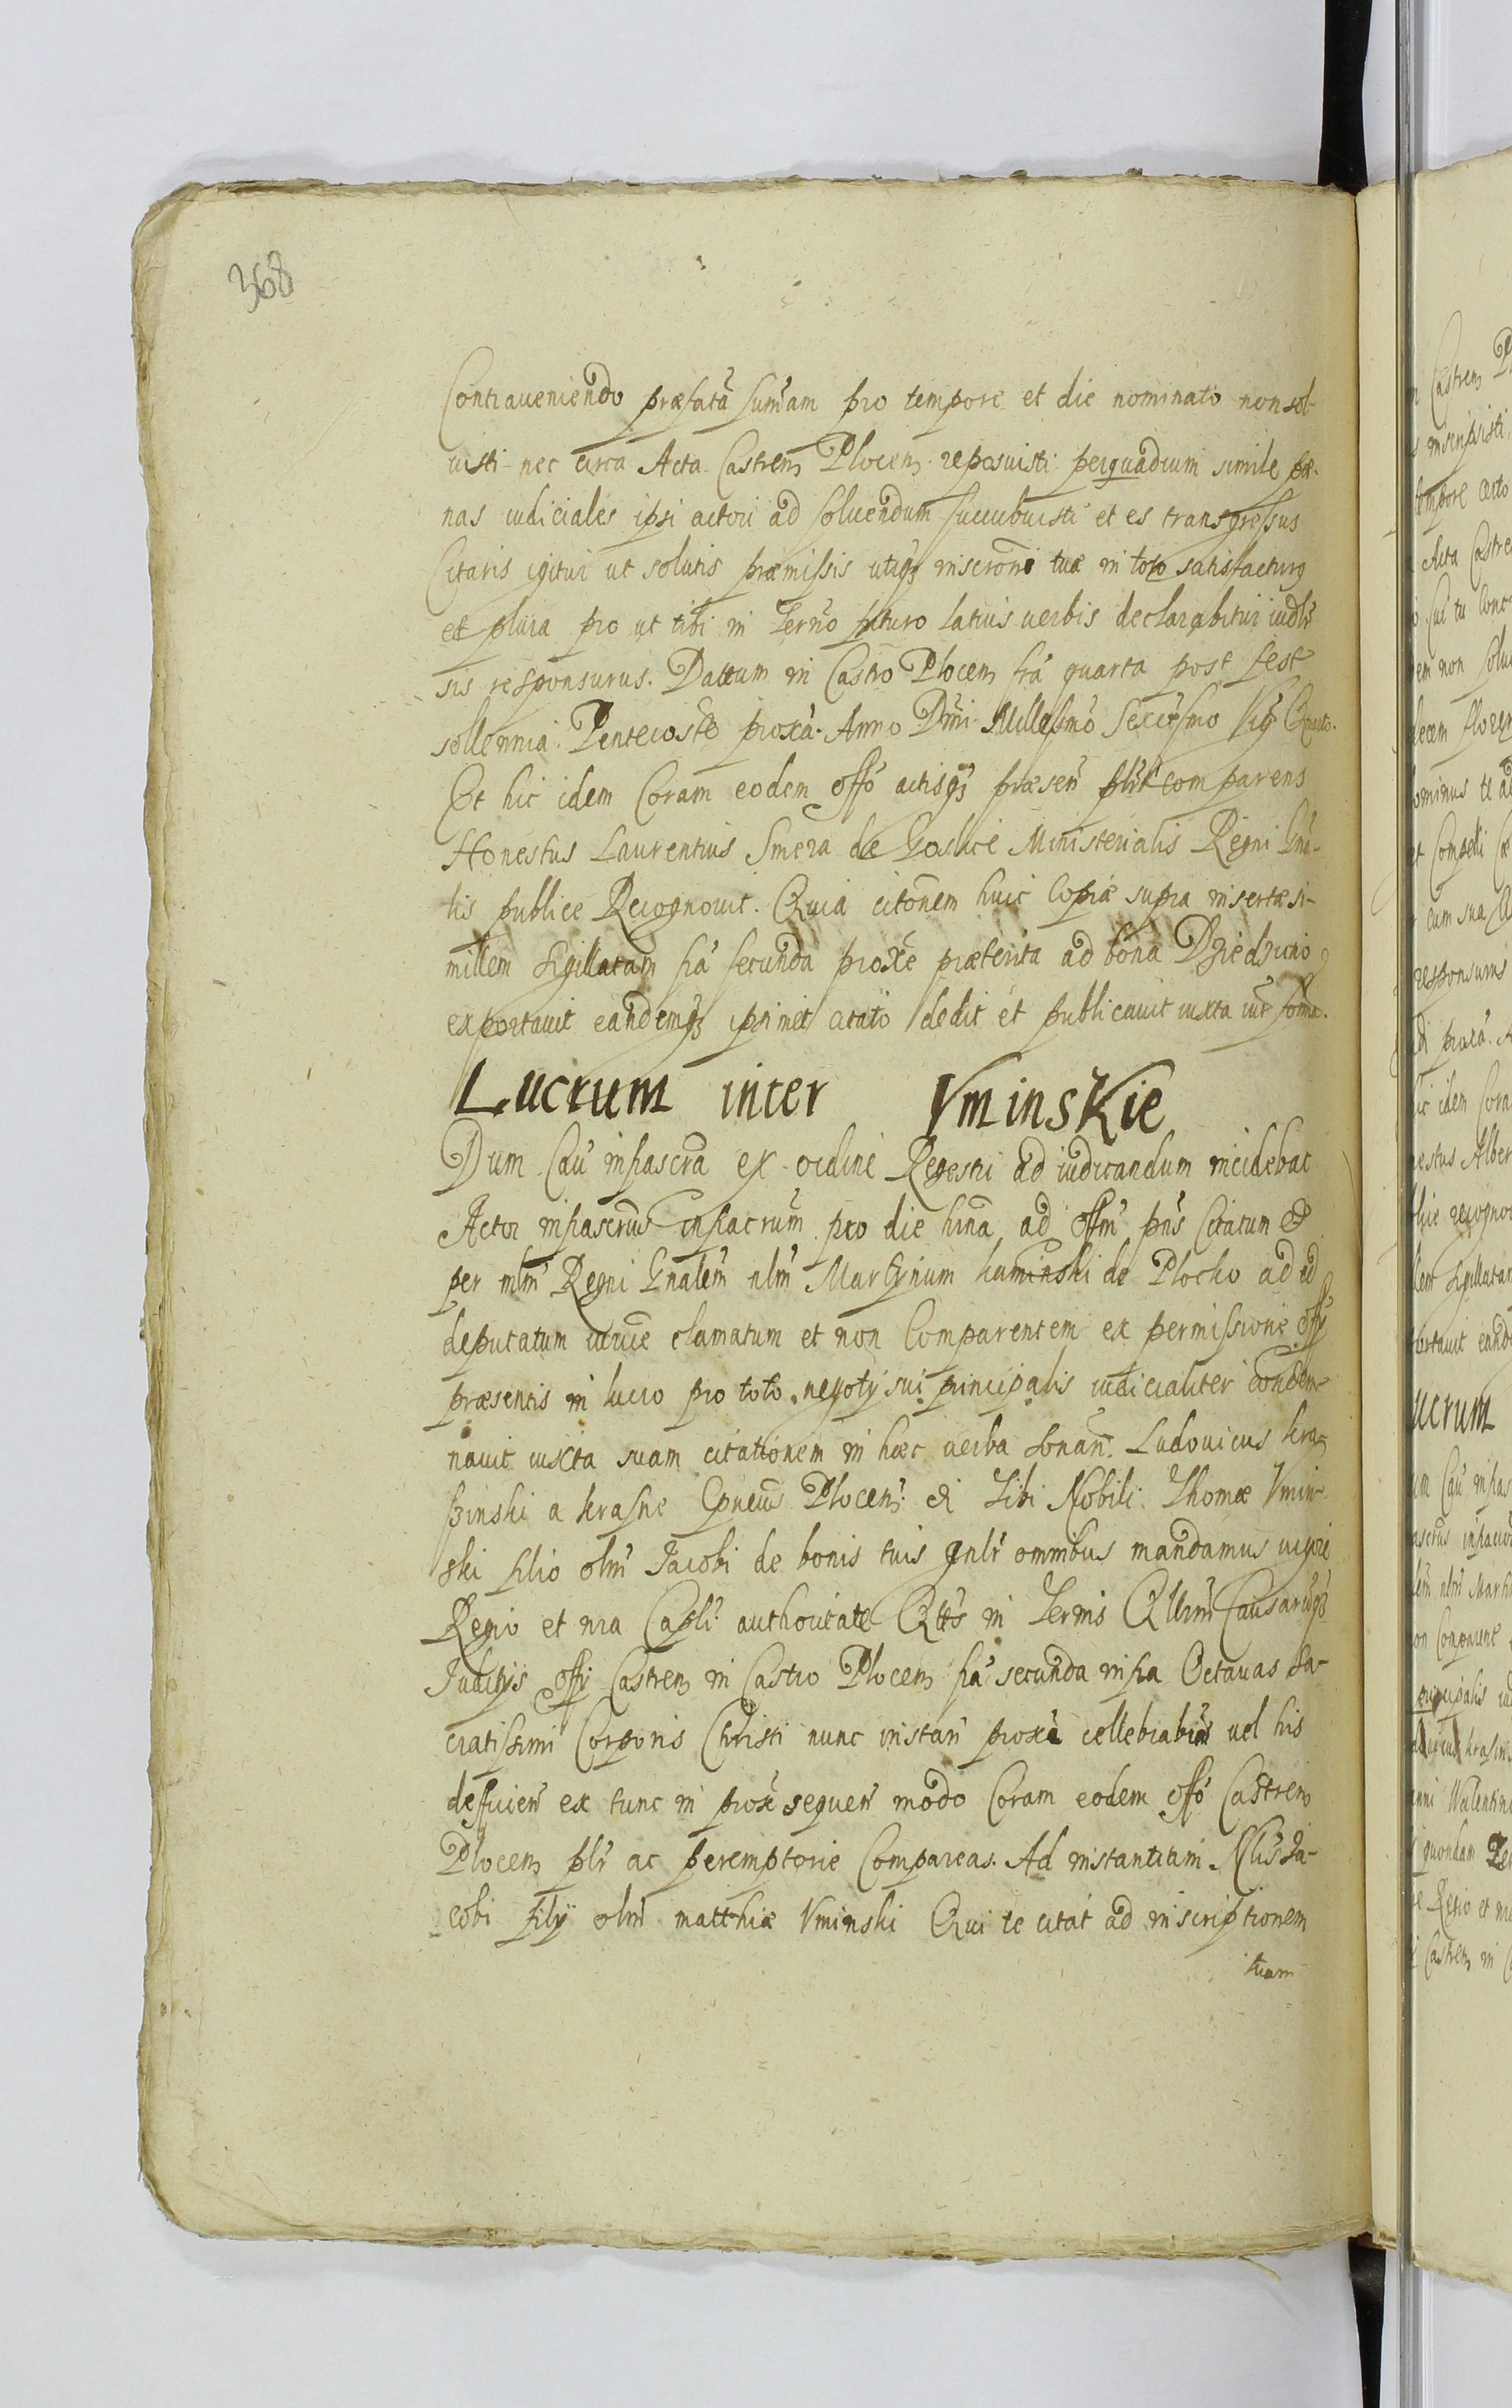 368
Contraueniendo præfatã sum̃am pro tempore et die nominato non sol-
uisti nec circa Acta Castreñ Plocens reposuisti perquadium simile pæ-
nas iudiciales ipsi actori ad soluendum succubuisti et es transgressus
Citaris igitur ut solutis præmissis utiq3 inscrõni tuæ in toto satisfacturq
et plura pro ut tibi in Terño futuro latius uerbis declarabitur iudlr
sis responsurus. Dattum in Castro Plocens fiã quarta post fest
sollennia Pentecoste proxã. Anno Dñi Millesmõ Sexcẽsmo Vig Quarto.
Et hic idem Coram eodem offõ actisq3 præseñ plr̃ comparens
Honestus Laurentius Smera de Goslice Ministerialis Regni Gña-
lis publice Recognouit. Quia citõnem huic Copiæ supra insertæ si-
millem sigillatam fiã secunda proxẽ præterita ad bona Dziedzino
exportauit eandemq3 ipsimet citato dedit et publicauit iuxta iur formã.
Lucrum inter Vminskie
Dum Cau infrascrã ex ordine Regestri ad iudicandum incidebat
Actor infrascrus infrascrum pro die hina ad offm̃ pñs Citatum et
per mlm̃ Regni Gnalem̃ nlm̃ Martynum kaminski de Plocko ad id
deputatum uoce clamatum et non Comparentem ex permissione offy
præsentis in lucro pro toto negoty sui principalis iudicialiter condem-
nauit iuxta suam citationem in hæc uerba sonañ. Ludouicus kra-
sinski a krasne Capneus Plocens: ei Tibi Nobili Thomæ Vmin-
ski filio olm̃ Jacobi de bonis tuis gnlr̃ omnibus mandamus
Regio et nra Capli authoritate Qtts in Termis Qllrm̃ Causarumq3
Judicys offy Castrens in Castro Plocens fiã secunda infra Octauas Sa-
cratissimi Corporis Christi nunc instañ proxẽ cellebrabiñ uel his
defficieñ ex tunc in proxẽ sequeñ modo Coram eodem offõ Castrens
Plocens plr̃ ac peremptorie Compareas. Ad instantiam Nlis Ja-
cobi fily olm̃ matthiæ Vminski Qui te citat ad inscriptionem
tuam